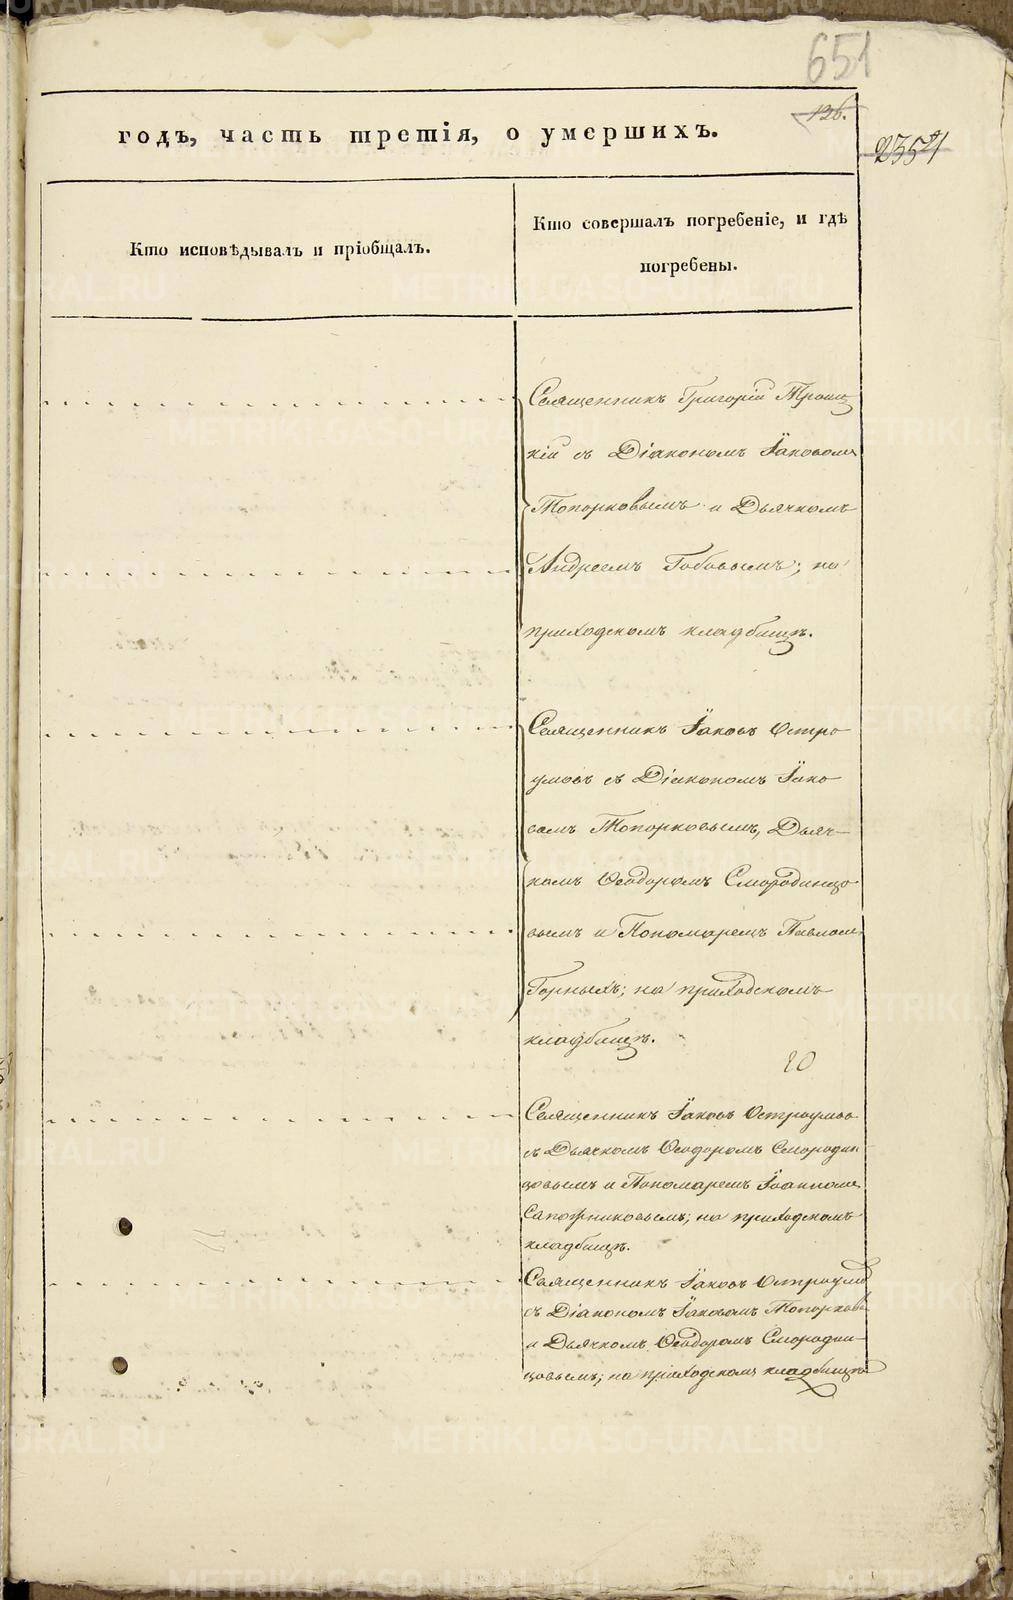 651
126.
годъ, часть третія, о умершихъ.
2351
Кто исповѣдывалъ и пріобщалъ.
Кто совершалъ погребеніе, и гдѣ
погребены.
Священникъ Григорій Троиц
кій съ Діакономъ Іаковомъ
Топорковымъ и Дьячкомъ
Андреемъ Бобовымъ; на
приходскомъ кладбищѣ.
Священникъ Іаковъ Остро
умовъ съ Діакономъ Іако
вомъ Топорковымъ, Дьяч-
комъ Ѳеодоромъ Смородинцо
вымъ и Пономаремъ Павломъ
Горныхъ; на приходскомъ
кладбищѣ.
Священникъ Іаковъ Остроумовъ
съ Дьячкомъ Ѳеодоромъ Смородин
цовымъ и Пономаремъ Іоанномъ
Сапожниковымъ; на приходскомъ
кладбищѣ.
Священникъ Іаковъ Остроумо
съ Діакономъ Іаковомъ Топорковы
и Дьячкомъ Ѳеодоромъ Смородин-
цовымъ; на приходскомъ кладбищѣ
METRIKI.GASO-URAL.RU